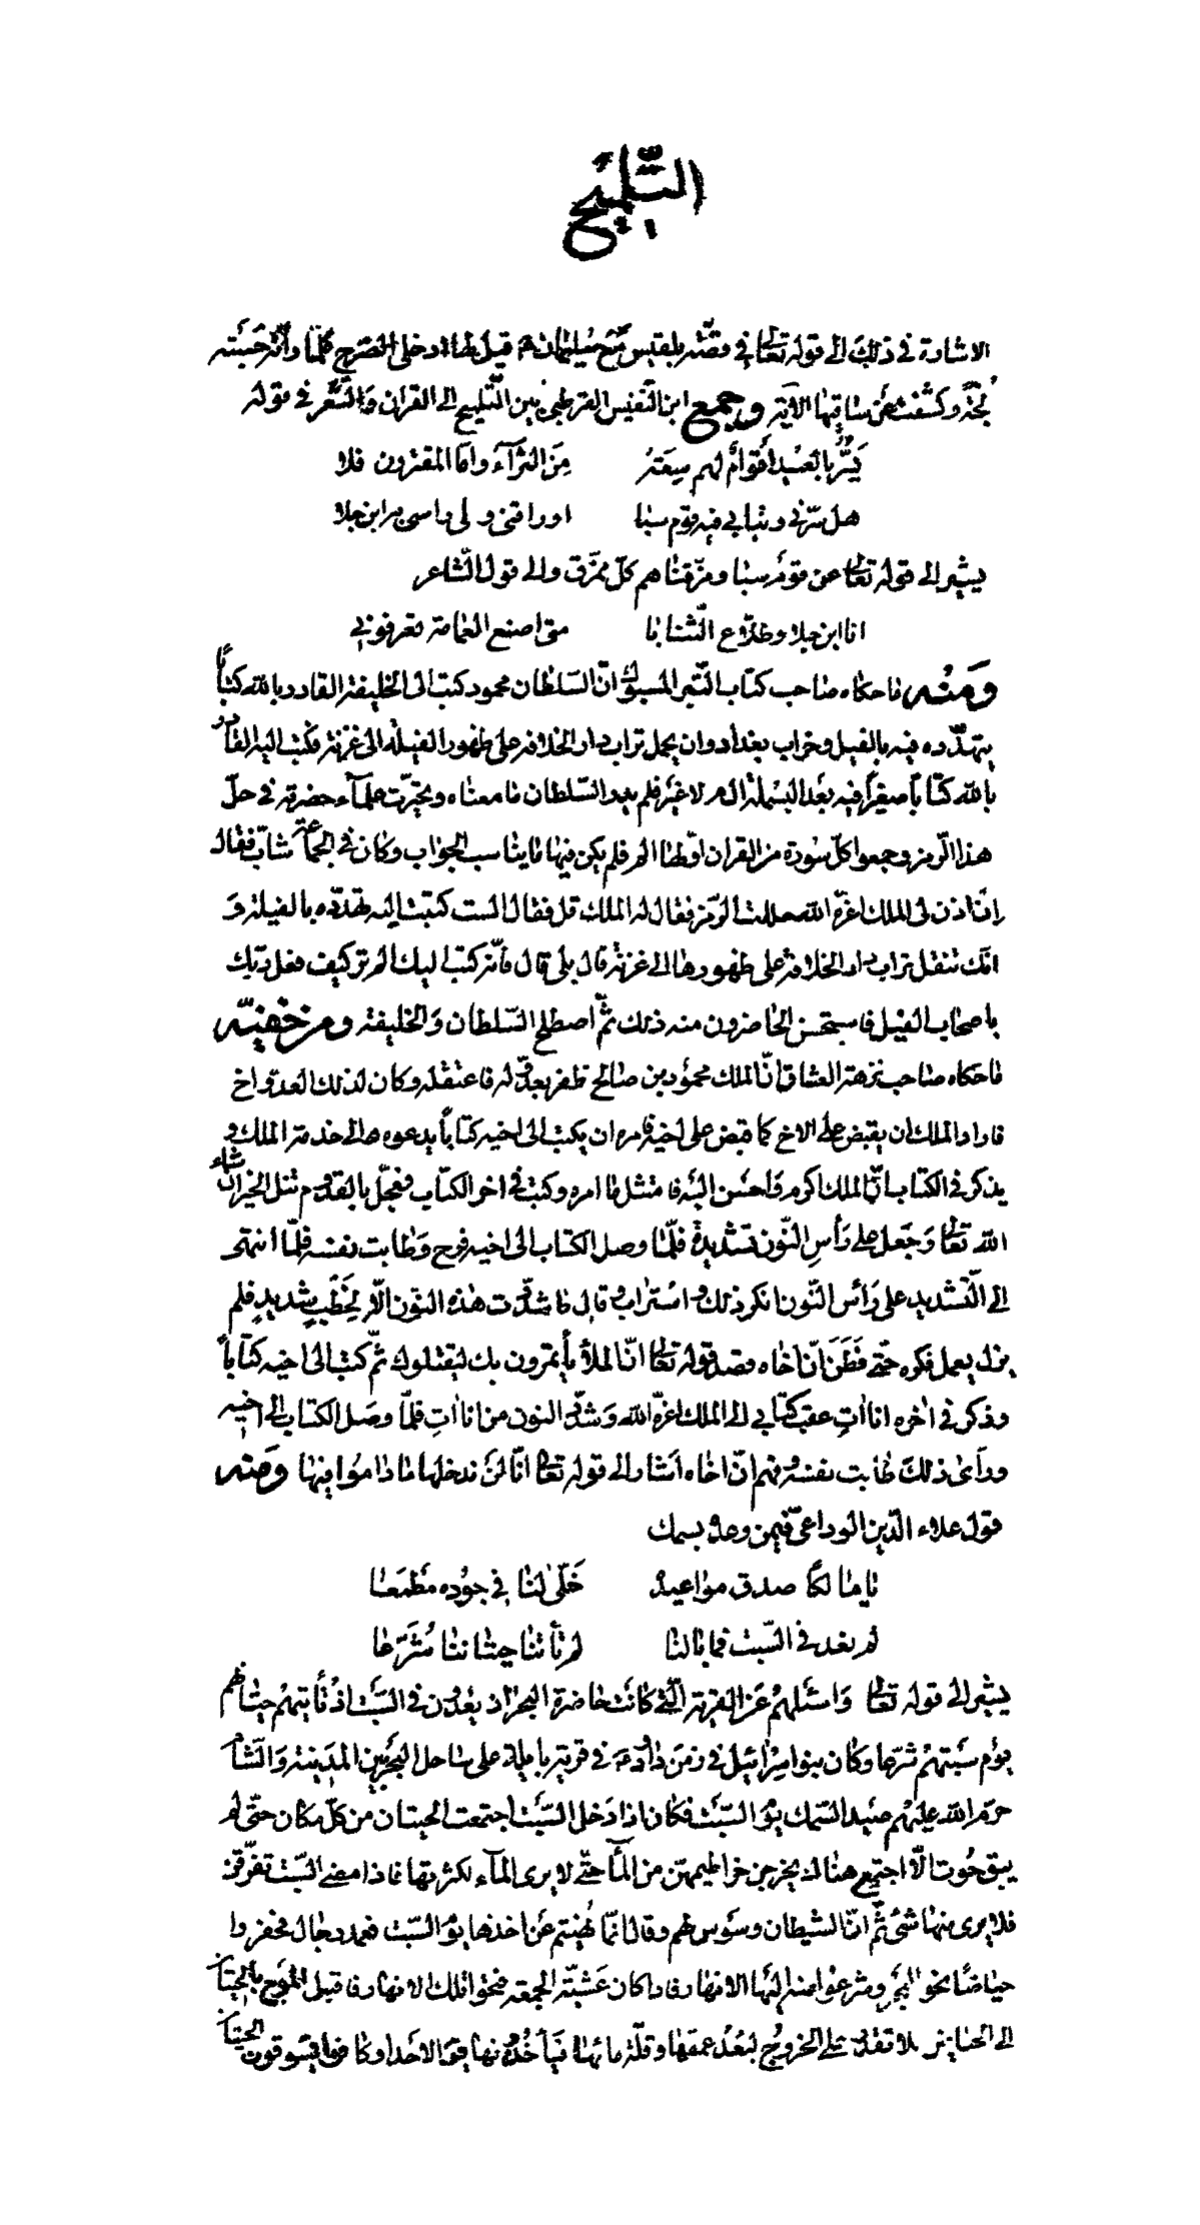 التلميح
الاشارة في ذلك الى قوله تعالى في قصّة بلقيس مع سليمان ع قيل لها ادخلى الصّرح فلمّا رأته حسبته
لجّة وكشفت عن ساقيها الآية وجمع ابن النّفيس القرطبي بين التّلميح الى القران والشّعر في قوله
يَسُرُّ بالعيد أقوام لهم سِعَة مِنَ الثرآء وامّا المقترون فلا
هل سرّني وثيابي فيه قوم سبا اوراقني وعلى راسى به ابن جلا
يشير الى قوله تعالى عن قوم سبا ومزّقناهم كلّ ممزّق والى قول الشّاعر
انا ابن جلا وطلّاع الثّنايا متى اضع العمامة تعرفوني
ومنه ما حكاه صاحب كتاب التّبر المسبوك انّ السّلطان محمود كتب الى الخليفة القادر بالله كتاباً
يتهدّده فيه بالفيل وخراب بغداد وان يحمل تراب دار الخلافة على ظهور الفيلة الى غزنة فكتب اليه القادر
بالله كتاباً صغيراً فيه بعد البسملة الم لا غير فلم يدر السّلطان ما معناه وتحيّرت علمآء حضرته في حلّ
هذا الرّمز وجمعوا كلّ سورة من القران اوّلها الم فلم يكن فيها ما يناسب الجواب وكان في الجماعة شابّ فقال
إن اذن لى الملك اعزّه الله حللت الرّمز فقال له الملك قل فقال الست كتبت اليه تهدّده بالفيلة و
انّك تنقل تراب دار الخلافة على ظهورها الى غزنة قال بلى قال فانّه كتب اليك الم تر كيف فعل ربّك
باصحاب الفيل فاستحسن الحاضرون منه ذلك ثمّ اصطلح السّلطان والخليفة ومن خفيّه
ما حكاه صاحب نزهة العشاق انّ الملك محمود بن صالح ظفر بعدوّ له فاعتقله وكان لذلك العدوّ اخ
فاراد الملك ان يقبض على الاخ كما قبض على اخيه فامره ان يكتب الى اخيه كتاباً يدعوه الى خدمة الملك و
يذكر في الكتاب انّ الملك اكرم واحسن اليه فامتثل ما امره وكتب في اخر الكتاب فعجّل بالقدوم تنل الخير ان شاء
الله تعالى وجعل على رأس النّون تشديدة فلمّا وصل الكتاب الى اخيه فرح وطابت نفسه فلمّا انتهى
الى التّشديد على رأس النّون انكر ذلك واستراب وقال ما شدّدت هذه النون الّا لخطب شديد فلم
يزل يعمل فكره حتّى فطن انّ اخاه قصد قوله تعالى انّ الملأ يأتمرون بك ليقتلوك ثمّ كتب الى اخيه كتاباً
وذكر في اخره انا اتٍ عقب كتابي الى الملك اعزّه الله وشدّد النون من انا اتٍ فلمّا وصل الكتاب الى اخيه
ورأى ذلك طابت نفسه وفهم انّ اخاه اشار الى قوله تعالى انّا لن ندخلها ما داموا فيها ومنه
قول علاء الدّين الوداعىّ فيمن وعد بسمك
يا مالكا صدق مواعيده خلّى لنا في جوده مطمعا
لم يعد في السّبت فما بالنا لم تأتنا حيتاننا شُرّعا
يشير الى قوله تعالى واسئلهم عن القرية الّتى كانت حاضرة البحر اذ يعدون في السّبت اذ تأتيهم حيتانهم
يوم سبتهم شرّعا وكان بنوا سرائيل في زمن داود ع في قرية بايلة على ساحل البحر بين المدينة والشام
حرّم الله عليهم صيد السّمك يوم السّبت فكان اذا دخل السّبت اجتمعت الحيتان من كلّ مكان حتّى لم
يبق حوت الّا اجتمع هناك يخرجن خراطيمهنّ من المآء حتّى لا يرى المآء لكثرتها فاذا مضى السّبت تفرّقن
فلا يرى منها شئ ثمّ انّ الشيطان وسوس لهم وقال انّما نهيتم عن اخذها يوم السّبت فعمد رجال فحفروا
حياضا نحو البحر وشرعوا منه اليها الانهار فاذا كان عشيّة الجمعة فتحوا تلك الانهار فاقبل الموج بالحيتان
الى الحياض فلا تقدر على الخروج لبعد عمقها وقلّة مائها فيأخذونها يوم الاحد وكانوا يسوقون الحيتان